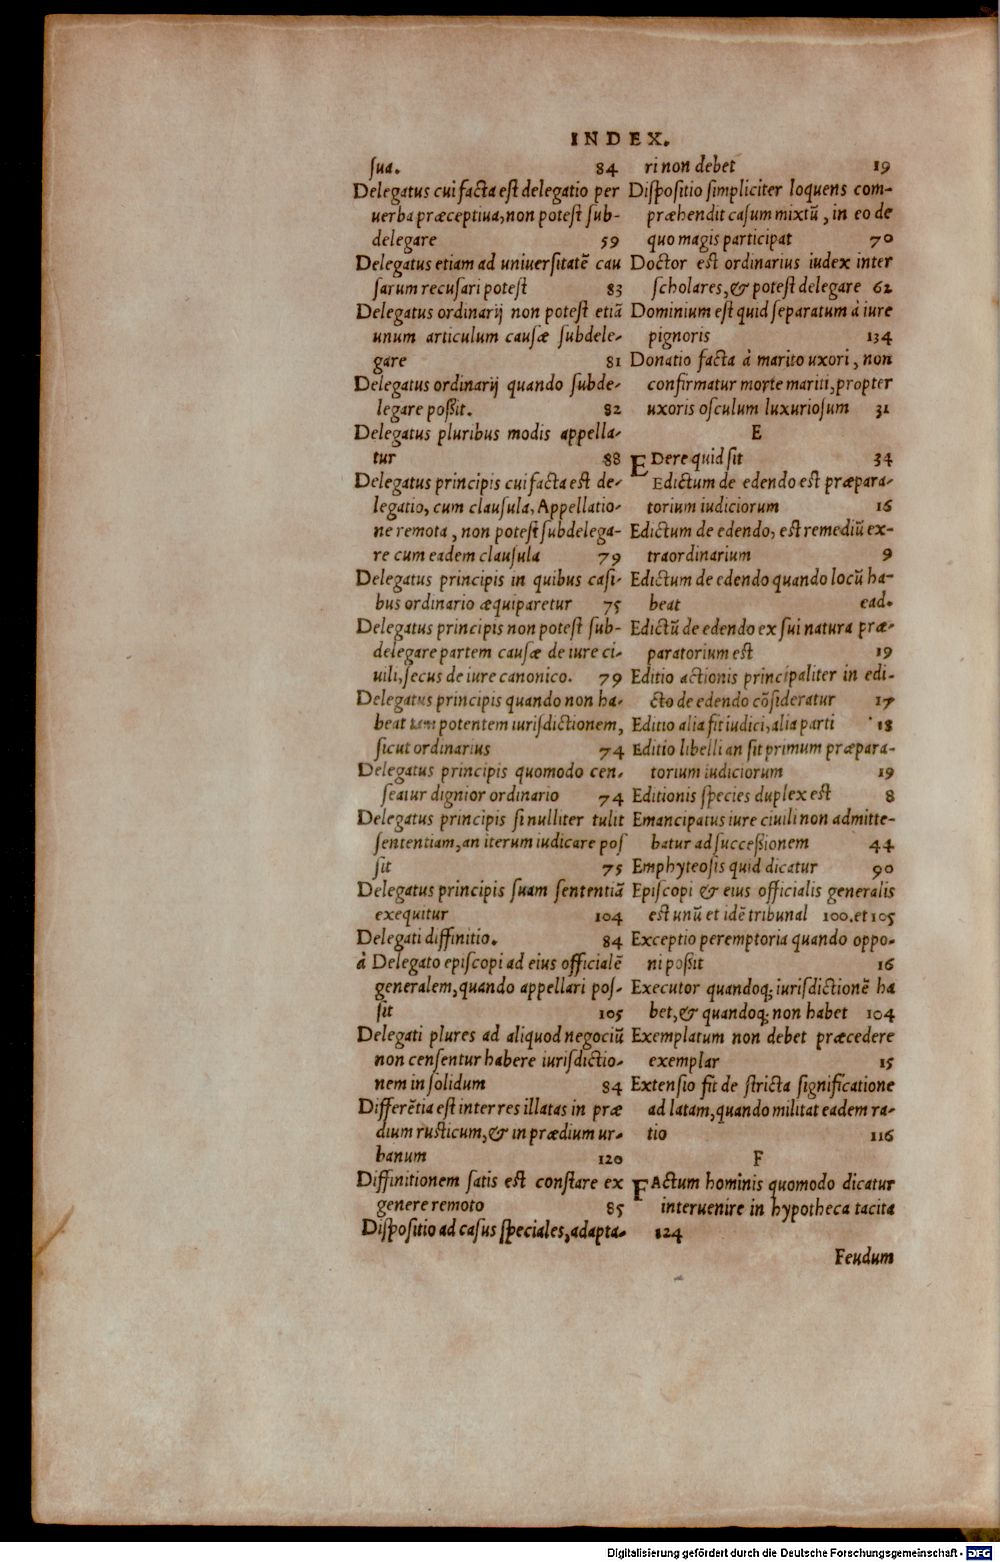 INDEX.
ſua. 84
Delegatus cui facta eſt delegatio per
uerba præceptiua, non poteſt ſub-
delegare 59
Delegatus etiam ad uniuerſitatē cau
ſarum recuſari poteſt 83
Delegatus ordinarij non poteſt etiā
unum articulum cauſæ ſubdele-
gare 81
Delegatus ordinarij quando ſubde-
legare poßit. 82
Delegatus pluribus modis appella-
tur 88
Delegatus principis cui facta est de-
legatio, cum clauſula, Appellatio-
ne remota, non poteſt ſubdelega-
re cum eadem clauſula 79
Delegatus principis in quibus caſi-
bus ordinario æquiparetur 75
Delegatus principis non poteſt ſub-
delegare partem cauſæ de iure ci-
uili, ſecus de iure canonico. 79
Delegatus principis quando non ha-
beat tam potentem iuriſdictionem,
ſicut ordinarius 74
Delegatus principis quomodo cen-
ſeatur dignior ordinario 74
Delegatus principis ſi nulliter tulit
ſententiam, an iterum iudicare poſ
ſit 75
Delegatus principis ſuam ſententiā
exequitur 104
Delegati diffinitio. 84
à Delegato epiſcopi ad eius officialē
generalem, quando appellari poſ-
ſit 105
Delegati plures ad aliquod negociū
non cenſentur habere iuriſdictio-
nem in ſolidum 84
Differētia eſt inter res illatas in præ
dium ruſticum, & in prædium ur-
banum 120
Diffinitionem ſatis est conſtare ex
genere remoto 85
Diſpoſitio ad caſus ſpeciales, adapta-
ri non debet 19
Diſpoſitio ſimpliciter loquens com-
præhendit caſum mixtū, in eo de
quo magis participat 70
Doctor est ordinarius iudex inter
ſcholares, & poteſt delegare 62
Dominium eſt quid ſeparatum à iure
pignoris 134
Donatio facta à marito uxori, non
confirmatur morte mariti, propter
uxoris oſculum luxurioſum 31
E
EDere quid ſit 34
Edictum de edendo est præpara-
torium iudiciorum 16
Edictum de edendo, est remediū ex-
traordinarium 9
Edictum de edendo quando locū ha-
beat ead.
Edictū de edendo ex ſui natura præ-
paratorium est 19
Editio actionis principaliter in edi-
cto de edendo cōſideratur 17
Editio alia fit iudici, alia parti 18
Editio libelli an ſit primum præpara-
torium iudiciorum 19
Editionis ſpecies duplex est 8
Emancipatus iure ciuili non admitte-
batur ad ſucceßionem 44
Emphyteoſis quid dicatur 90
Epiſcopi & eius officialis generalis
est unū et idē tribunal 100. et 105
Exceptio peremptoria quando oppo-
ni poßit 16
Executor quandoq; iuriſdictionē ha
bet, & quandoq; non habet 104
Exemplatum non debet præcedere
exemplar 15
Extenſio fit de ſtricta ſignificatione
ad latam, quando militat eadem ra-
tio 116
F
FActum hominis quomodo dicatur
interuenire in hypotheca tacita
124
Feudum
Digitalisierung gefördert durch die Deutsche Forschungsgemeinschaft - DFG